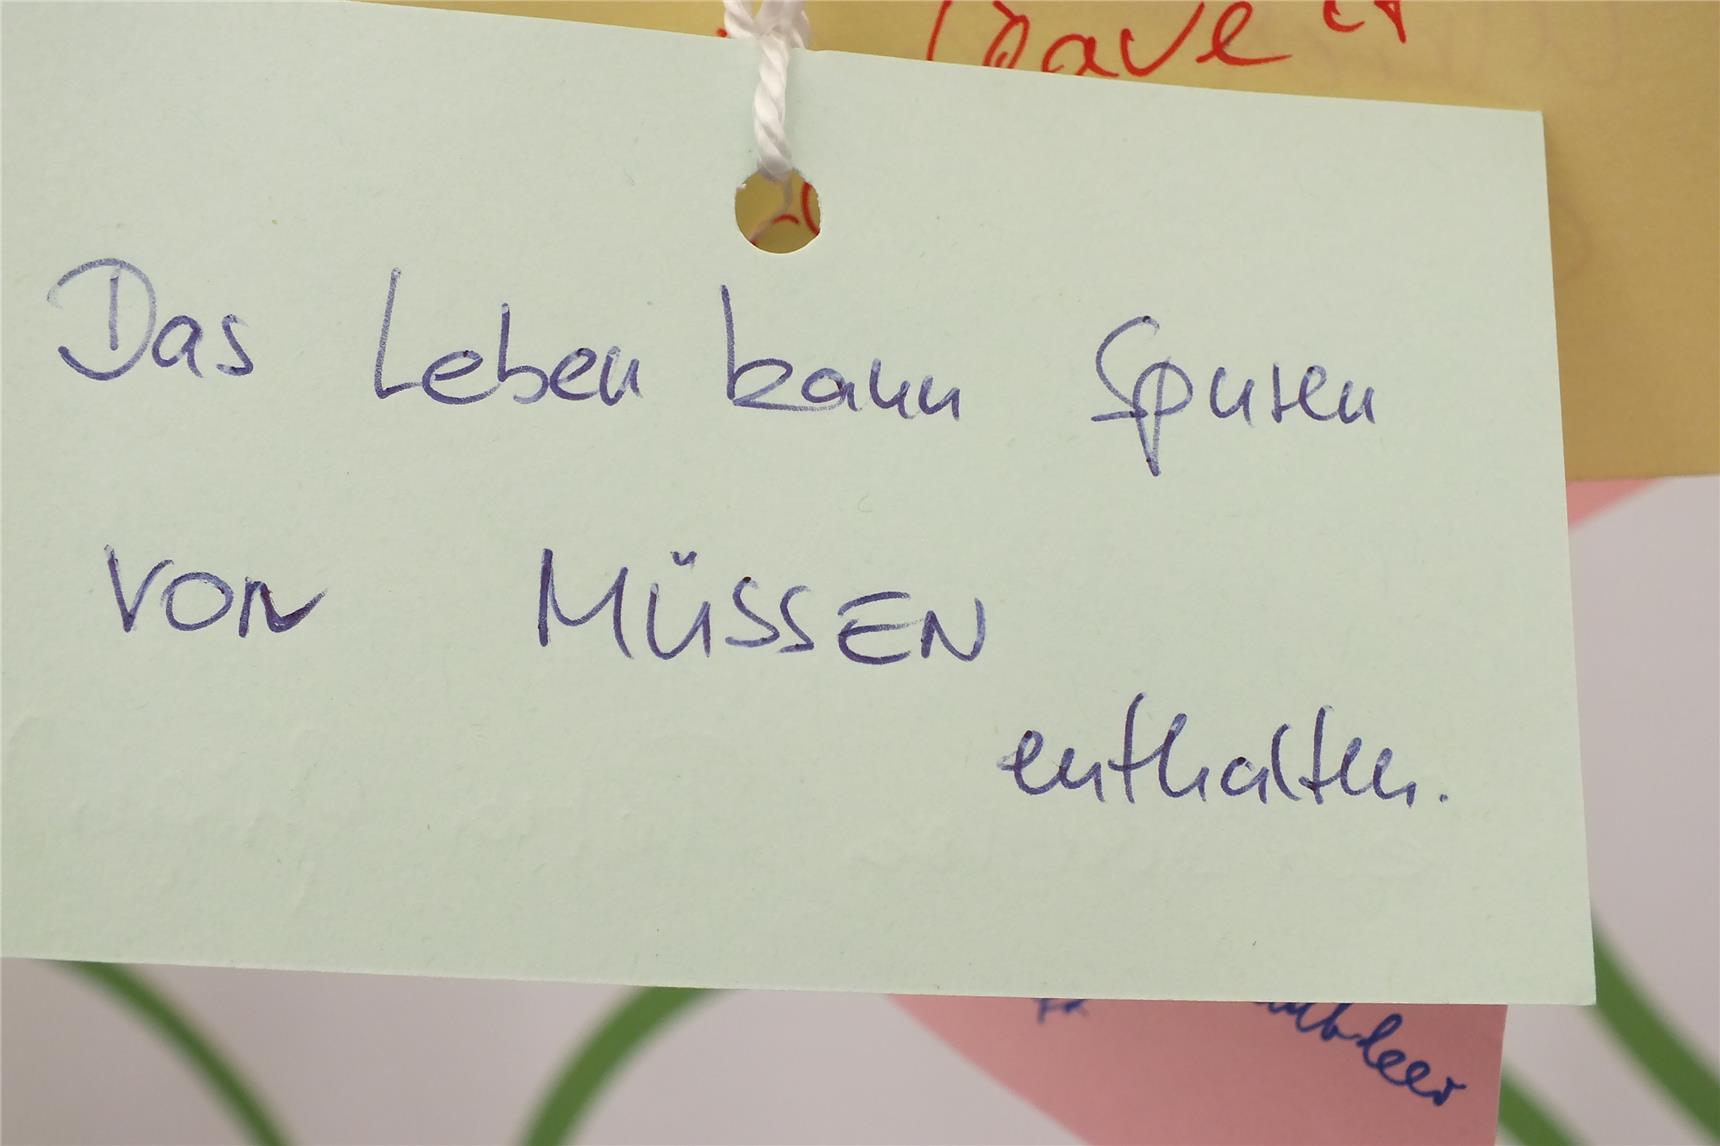 leave it
Das Leben kann Spuren
von MÜSSEN
enthalten.